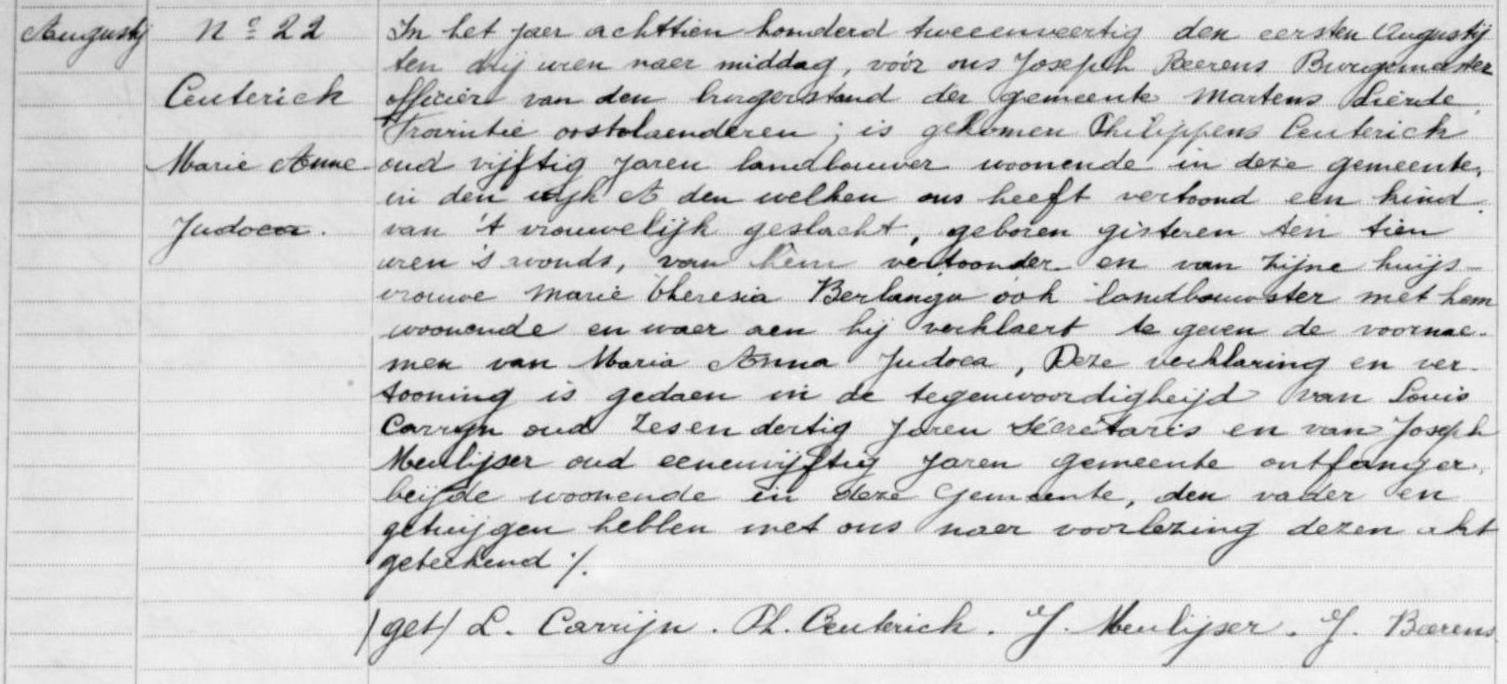 Augustij
Nº 22
Ceuterick
Marie Anne
Judoca.
In het jaer achttien honderd tweeenveertig den eersten Augustij
ten drij uren naer middag, vóór ons Joseph Baerens Burgemeester
officier van den burgerstand der gemeente Martens Lierde
Provintie oostvlaenderen ; is gekomen Philippens Ceuterick
oud vijftig jaren landbouwer woonende in deze gemeente,
in den wijk A den welken ons heeft vertoond een kind
van 't vrouwelijk geslacht, geboren gisteren ten tien
uren 's avonds, van hem vertoonder en van zijne huijs-
vrouwe Marie Theresia Berlangu ook landbouwster met hem
woonende en waer aen hij verklaert te geven de voornae-
men van Maria Anna Judoca, Deze verklaring en ver-
tooning is gedaen in de tegenwoordigheijd van Louis
Carrijn oud zesendertig jaren sécrétaris en van Joseph
Meulijser oud eenenvijftig jaren gemeente ontfanger,
beijde woonende in deze Gemeente, den vader en
getuijgen hebben met ons naer voorlezing dezen akt
geteekend ./.
/get/ L. Carrijn . Ph. Ceuterick . J. Meulijser . J. Baerens